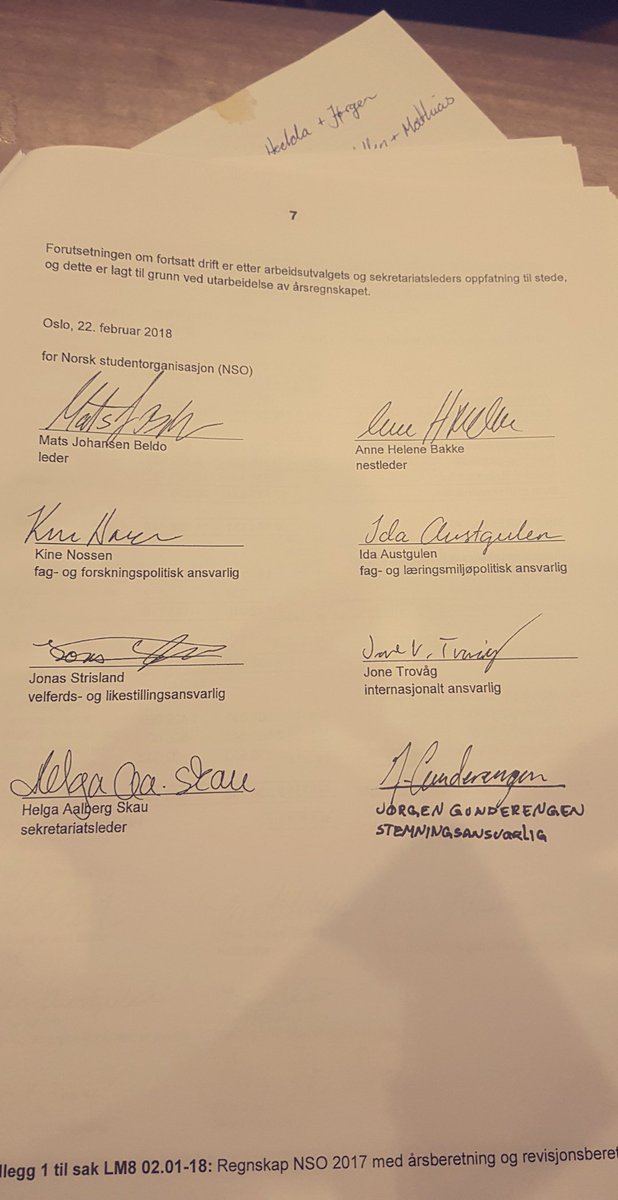 Hedda + Jørgen
+ Mathias
7
Forutsetningen om fortsatt drift er etter arbeidsutvalgets og sekretariatsleders oppfatning til stede,
og dette er lagt til grunn ved utarbeidelse av årsregnskapet.
Oslo, 22. februar 2018
for Norsk studentorganisasjon (NSO)
Mats Johansen Beldo
leder
Anne Helene Bakke
nestleder
Kine Nossen
fag- og forskningspolitisk ansvarlig
Ida Austgulen
Ida Austgulen
fag- og læringsmiljøpolitisk ansvarlig
Jonas Strisland
velferds- og likestillingsansvarlig
Jone Trovåg
internasjonalt ansvarlig
Helga Aa. Skau
Helga Aalberg Skau
sekretariatsleder
J. Gunderengen
JØRGEN GUNDERENGEN
STEMNINGSANSVARLIG
llegg 1 til sak LM8 02.01-18: Regnskap NSO 2017 med årsberetning og revisjonsberet